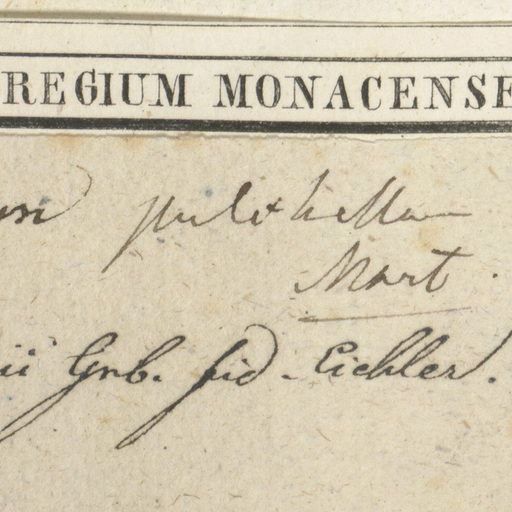 REGIUM MONACENSE
pulchella
Mart.
ii Grb. fid. Eichler.